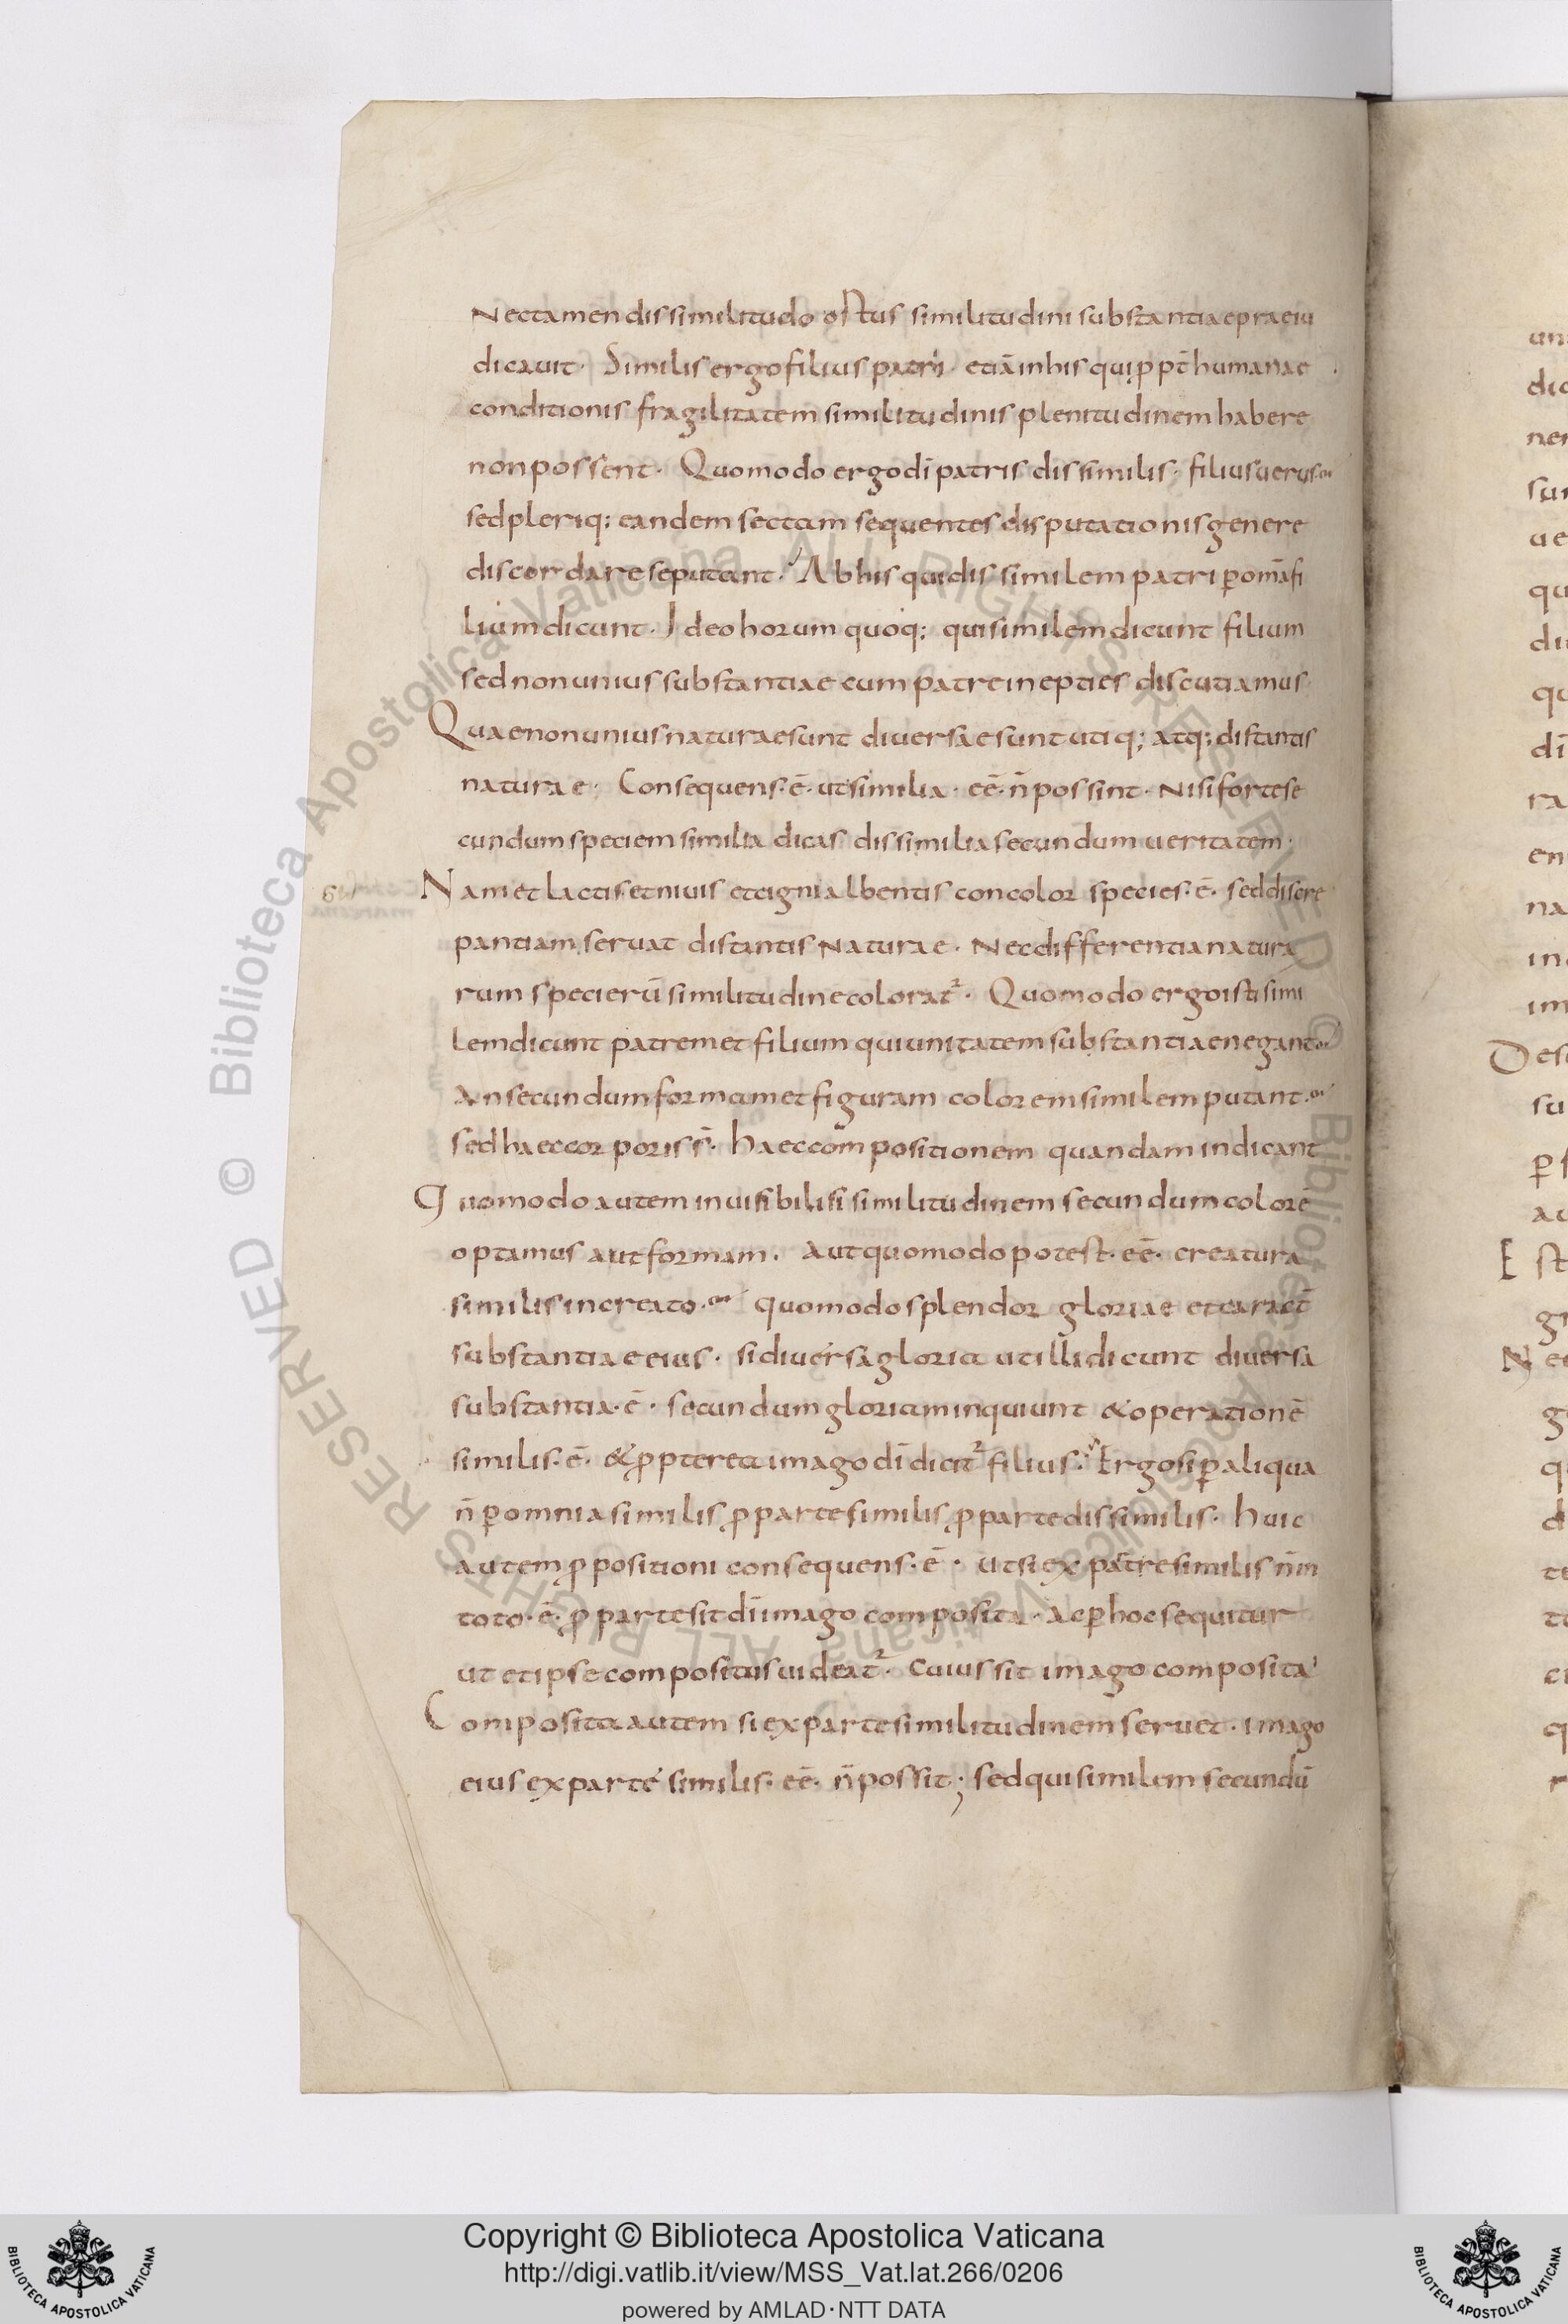 Nec tamen dissimilitudo ortus similitudini substantiae praeiu
dicauit. Similis ergo filius patri etiā in his qui ꝓpt̄ humanae
conditionis fragilitatem similitudinis plenitudinem habere
non possent. Quomodo ergo dī patris dissimilis. filius uerus
sed pleriq; eandem sectam sequentes disputationis genere
discordare se putant. Ab his qui dissimilem patri ꝑ om̄a fi
lium dicunt. Ideo horum quoq; qui similem dicunt filium
sed non unius substantiae cum patre inepties discutiamus
Quae non unius naturae sunt diuersae sunt utiq; atq; distantis
naturae. Consequens. ē. ut similia. eē. n̄ possint. Nisi forte se
cundum speciem similia dicas dissimilia secundum ueritatem.
Nam et lactis et niuis et cigni albentis concolor species. ē. sed discre
pantiam seruat distantis naturae. Nec differentia natura
rum specierū similitudine colorat᷑. Quomodo ergo isti simi
lem dicunt patrem et filium qui unitatem substantiae negant
An secundum formam et figuram colorem similem putant.
sed haec corporis s̄. haec compositionem quandam indicant
Quomodo autem inuisibilis similitudinem secundum colorē
optamus aut formam. Aut quomodo potest. eē. creatura
similis increato. quomodo splendor gloriae et caract̄
substantiae eius. si diuersa gloria ut illi dicunt diuersa
substantia. ē. secundum gloriam inquiunt & operationē
similis. ē. & ꝓpterea imago dī dicit᷑ filius. Ergo si ꝑ aliqua
n̄ ꝑ omnia similis ꝓ parte similis ꝓ parte dissimilis. Huic
autem ꝓpositioni consequens. ē. ut si ex patre similis n̄ in
toto. ē. ꝓ parte sit dī imago composita. Ac ꝑ hoc sequitur
ut et ipse compositus uideat᷑. Cuius sit imago composita
Composita autem si ex parte similitudinem seruet. imago
eius ex parte similis. eē. n̄ possit; sed qui similem secundū
Copyright © Biblioteca Apostolica Vaticana
http://digi.vatlib.it/view/MSS_Vat.lat.266/0206
powered by AMLAD·NTT DATA